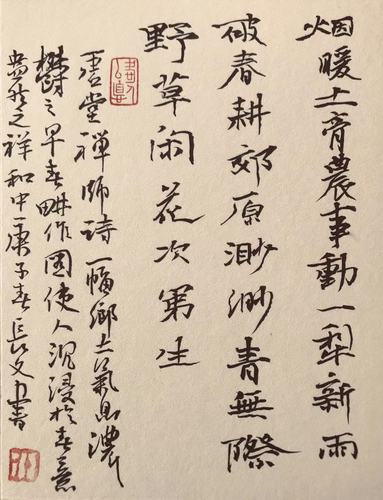 烟暖土膏農事動一犁新雨
破春耕郊原渺渺青無際
野草闲花次第生
堂禅師詩一幅鄉土氣息濃
鬱之早春耕作圖使人沉浸於春意
盎然之祥和中庚子春長文書